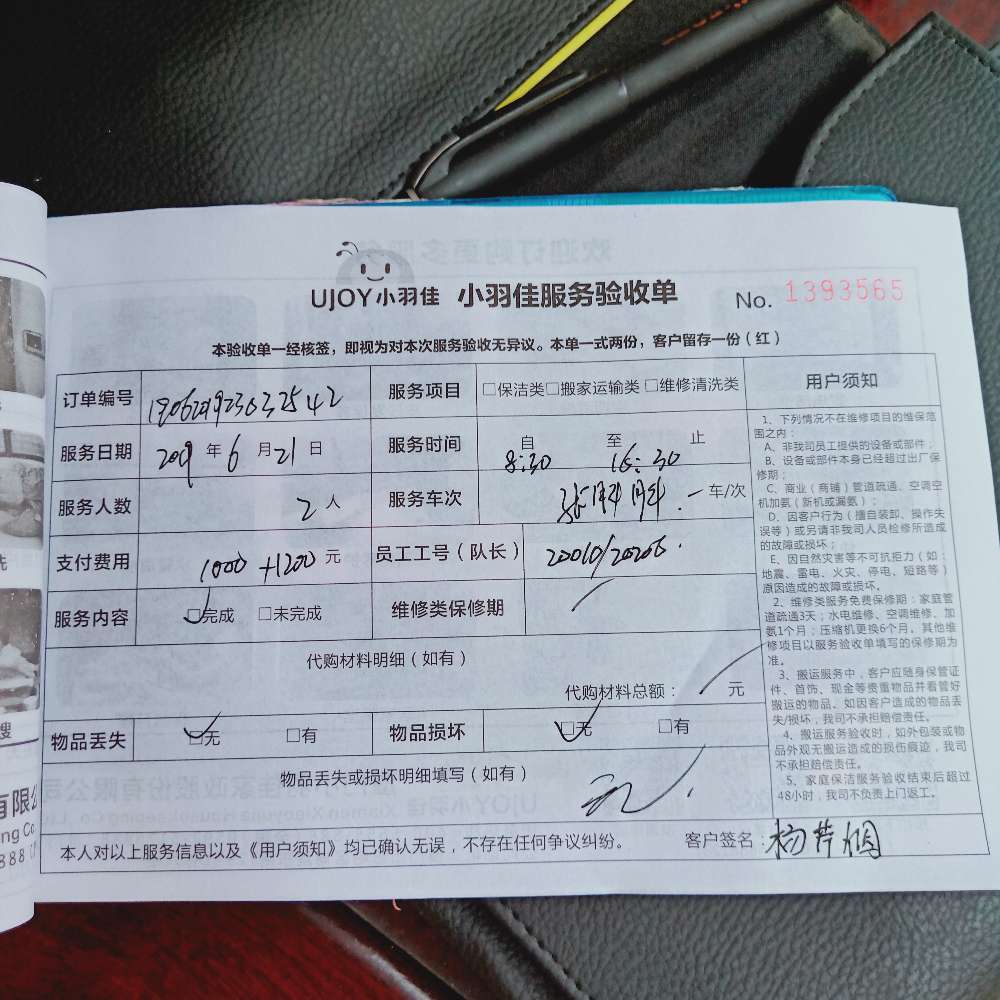 UJOY小羽佳 小羽佳服务验收单 No. 1393565
本验收单一经核签，即视为对本次服务验收无异议。本单一式两份，客户留存一份（红）
订单编号 服务项目 □保洁类□搬家运输类 □维修清洗类
服务日期 2019 年 6 月 21 日 服务时间 自 至 止
8:30 16:30
服务人数 2 人 服务车次 一 车/次
支付费用 1000 +1200 元 员工工号（队长） 20010/20206.
服务内容 □完成 □未完成 维修类保修期
代购材料明细（如有）
代购材料总额： 元
物品丢失 □无 □有 物品损坏 □无 □有
物品丢失或损坏明细填写（如有）
无.
本人对以上服务信息以及《用户须知》均已确认无误，不存在任何争议纠纷。 客户签名：
用户须知
1、下列情况不在维修项目的维保范
围之内：
A、非我司员工提供的设备或部件；
B、设备或部件本身已经超过出厂保
修期；
C、商业（商铺）管道疏通、空调空
机加氨（新机或漏氨）；
D、因客户行为（擅自装卸、操作失
误等）或另请非我司人员检修所造成
的故障或损坏；
E、因自然灾害等不可抗拒力（如：
地震、雷电、火灾、停电、短路等）
原因造成的故障或损坏。
2、维修类服务免费保修期：家庭管
道疏通3天；水电维修、空调维修、加
氨1个月；压缩机更换6个月。其他维
修项目以服务验收单填写的保修期为
准。
3、搬运服务中，客户应随身保管证
件、首饰、现金等贵重物品并看管好
搬运的物品。如因客户造成的物品丢
失/损坏，我司不承担赔偿责任。
4、搬运服务验收时，如外包装或物
品外观无搬运造成的损伤痕迹，我司
不承担赔偿责任。
5、家庭保洁服务验收结束后超过
48小时，我司不负责上门返工。